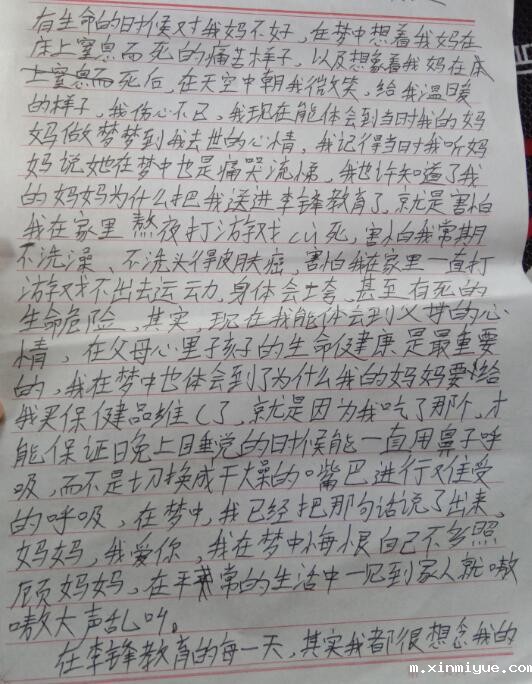 有生命的时候对我妈不好，在梦中想着我妈在
床上窒息而死的痛苦样子，以及想象着我妈在床
上窒息而死后，在天空中朝我微笑，给我温暖
的样子，我伤心不已，我现在能体会到当时我的妈
妈做梦梦到我去世的心情，我记得当时我听妈
妈说她在梦中也是痛哭流涕，我也许知道了我
的妈妈为什么把我送进李锋教育了，就是害怕
我在家里熬夜打游戏cù死，害怕我常期
不洗澡、不洗头得皮肤癌，害怕我在家里一直打
游戏不出去运动，身体会土夸，甚至有死的
生命危险，其实，现在我能体会到父母的心
情，在父母心里子孩子的生命健康是最重要
的，我在梦中也体会到了为什么我的妈妈要给
我买保健品维C了，就是因为我吃了那个，才
能保证晚上睡觉的时候能一直用鼻子呼
吸，而不是切换成干燥的嘴巴进行难受
的呼吸，在梦中，我已经把那句话说了出来，
妈妈，我爱你，我在梦中悔恨自己不多照
顾妈妈，在平常的生活中一见到家人就嗷
嗷大声乱叫。
在李锋教育的每一天，其实我都很想念我的
m.xinmiyue.com